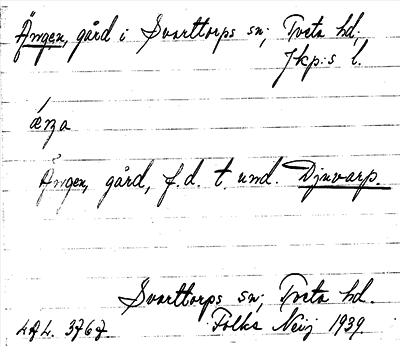 Ängen, gård i Svarttorps sn; Tveta hd;
Jkp:s l.
Ängen, gård, f.d. t. und. Djuvarp.
Svarttorps sn; Tveta hd.
Folke 1939